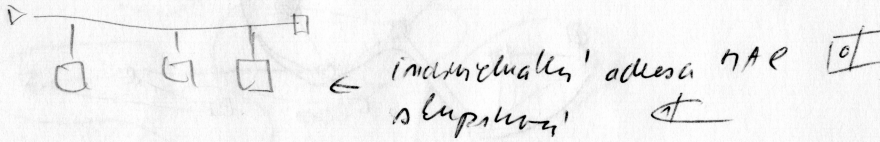 ← individuální adresa MAC 0
skupinová 1